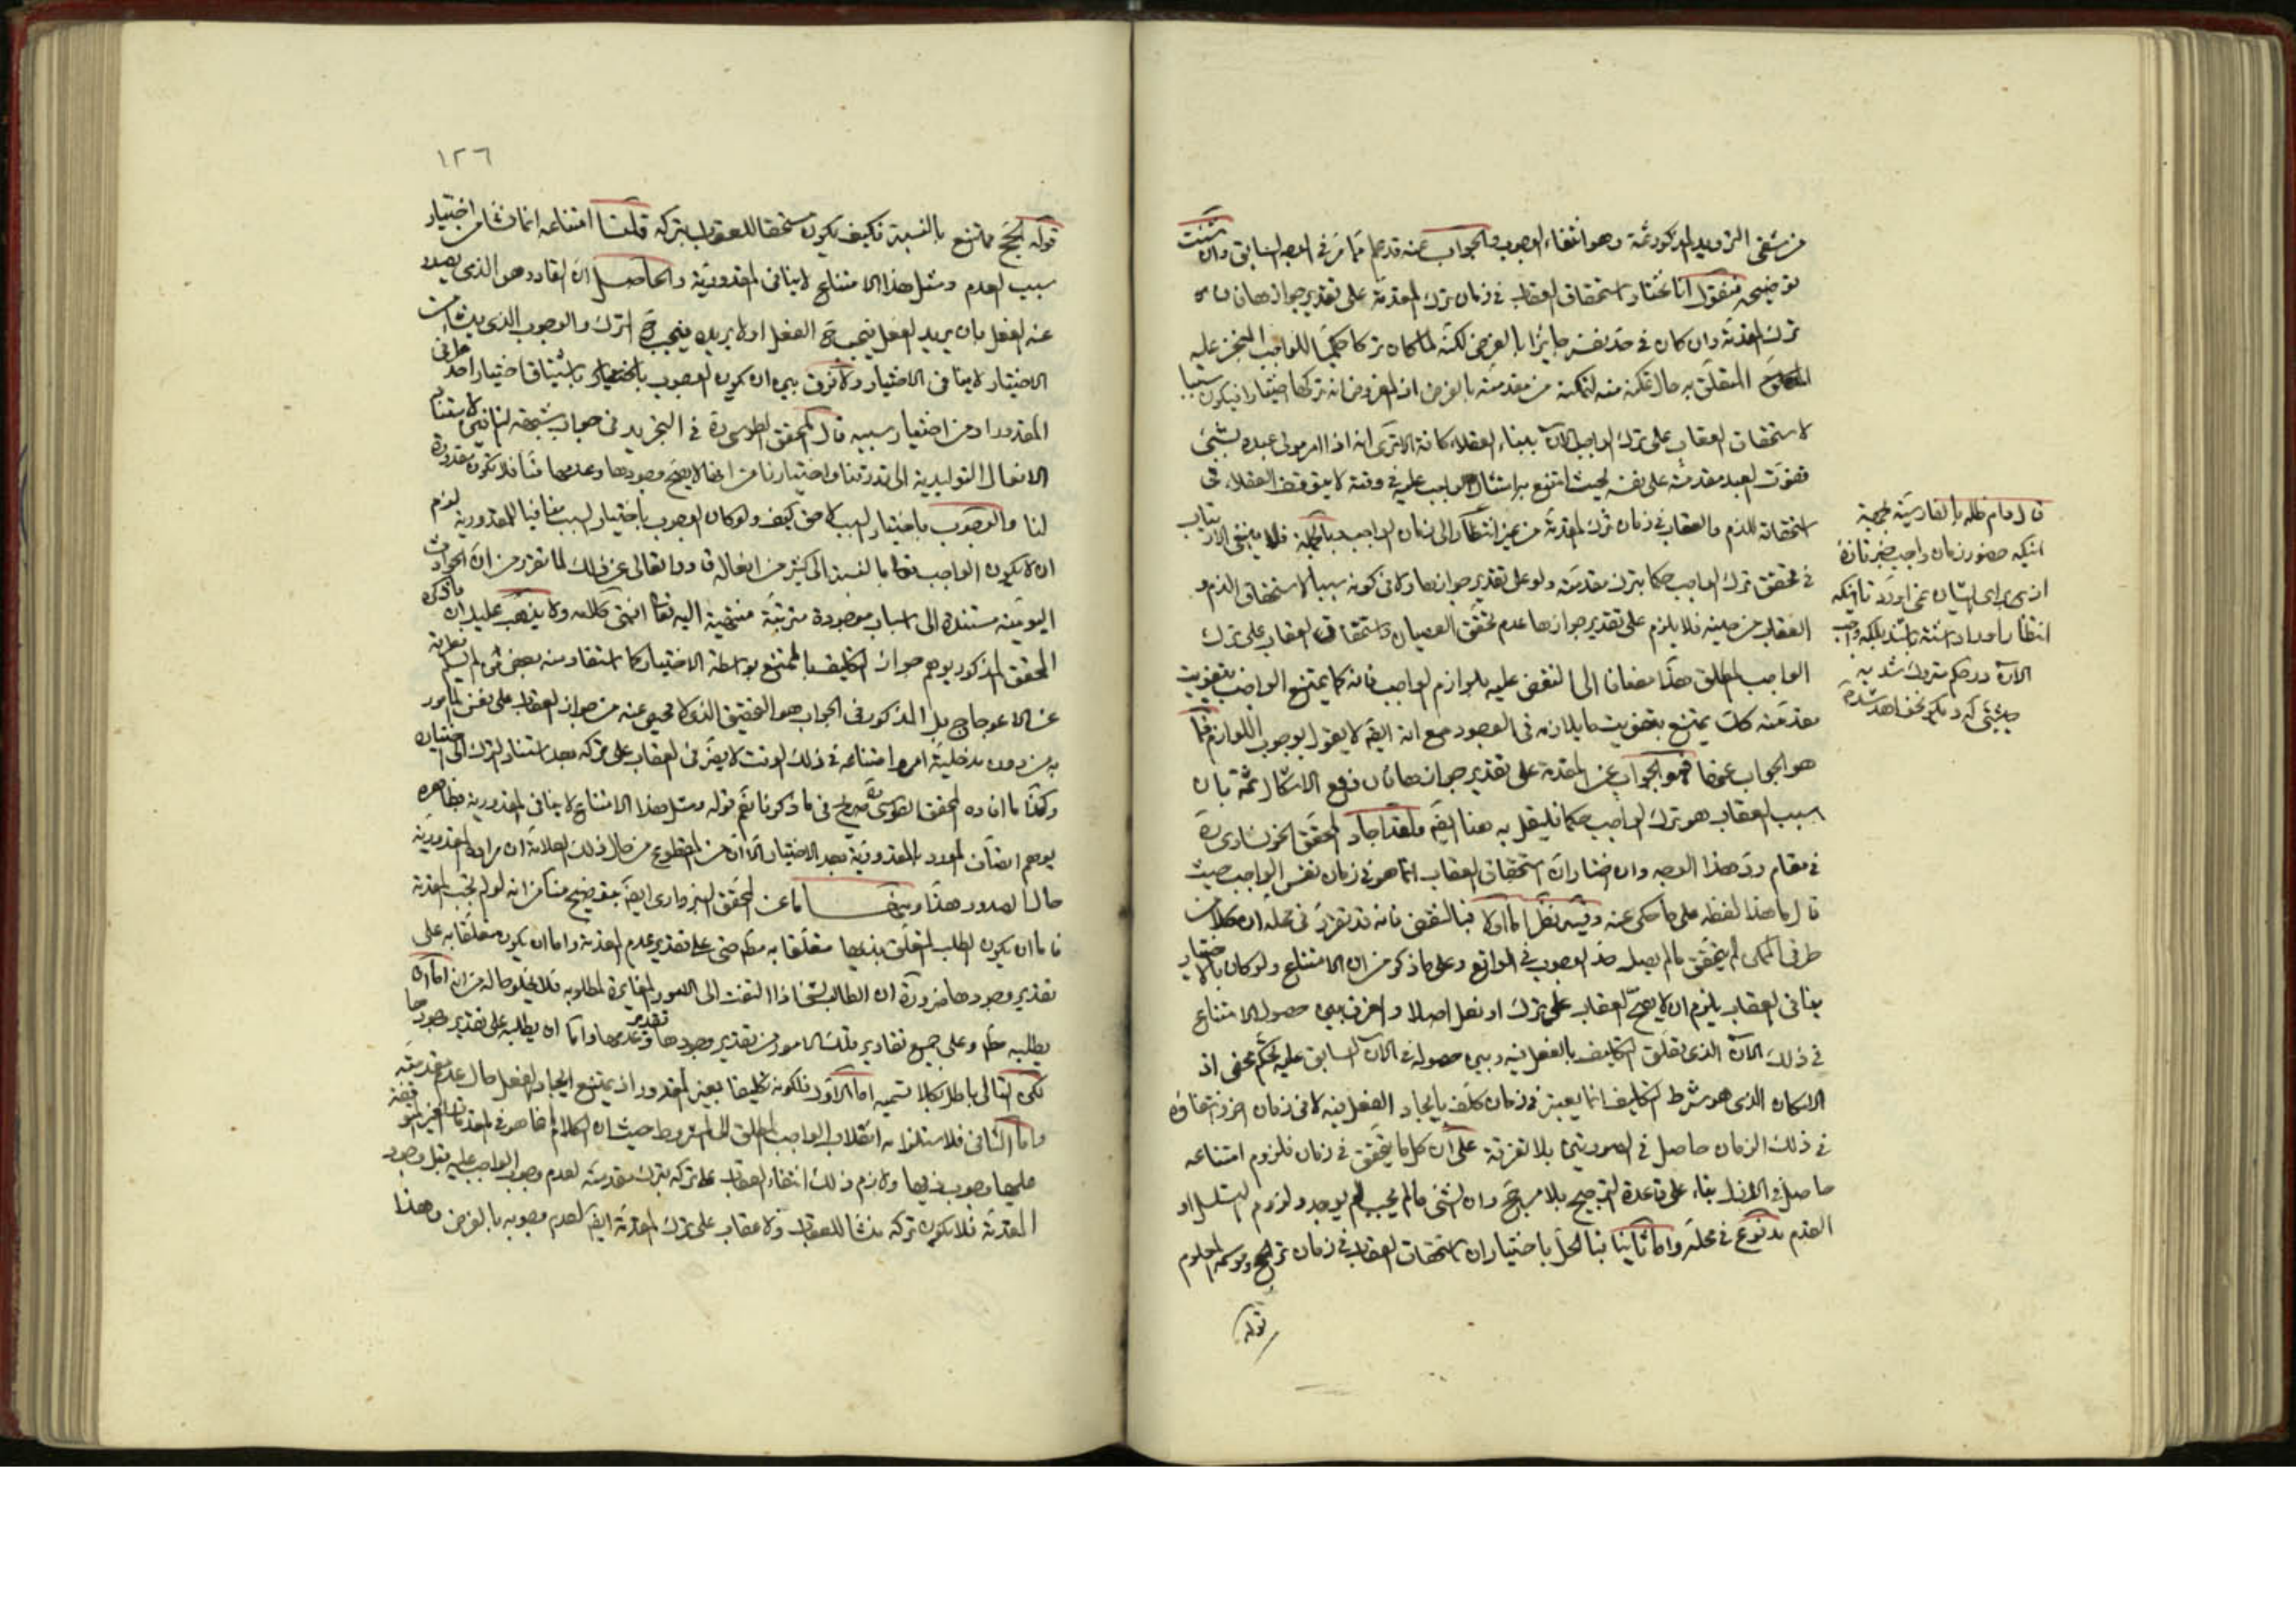 من شقي الترديد المذكور ثمة وهو انتفاء الوجوب والجواب عنه قد علم مما مر في الوجه السابق وان شئت
توضيحه فنقول انا نختار استحقاق العقاب في زمان ترك المقدمة على تقدير جوازها فان
ترك المقدمة وان كان في حد نفسه جايزا بالفرض لكنه لما كان تركا حكميا للواجب المنجز عليه
المتعلق به حال تمكنه منه لتمكنه من مقدمته بالفرض اذ المفروض انه تركها اختيارا فيكون سببا
لاستحقاق العقاب على ترك الواجب الآن ببناء العقلاء كافة الا ترى انه اذا امر مولى عبده بشيئ
ففوت العبد مقدمته على نفسه بحيث امتنع به امتثال الواجب عليه في وقته لا يتوقف العقلاء في
استحقاقه للذم والعقاب في زمان ترك المقدمة من غير انتظار الى زمان الواجب وبالجملة فلا ينبغي الارتياب
في تحقق ترك الواجب حكما بترك مقدمته ولو على تقدير جوازها ولا في كونه سببا لاستحقاق الذم و
العقاب من حينه فلا يلزم على تقدير جوازها عدم تحقق العصيان واستحقاق العقاب على ترك
الواجب المطلق هذا مضافا الى النقض عليه بلوازم الواجب فانه كما يمتنع الواجب بتفويت
مقدمته كك يمتنع بتفويت ما يلازمه في الوجود مع انه ايضا لا يقول بوجوب اللوازم فما
هو الجواب عنها فهو الجواب عن المقدمة على تقدير جوازها فان دفع الاشكال ثمة بان
سبب العقاب هو ترك الواجب حكما فليقل به هنا ايضا ولقد اجاد المحقق الخونساري ره
في مقام رد هذا الوجه وان اختار ان استحقاق العقاب انما هو في زمان نفس الواجب حيث
قال ما هذا لفظه على ما حكى عنه وفيه نظر اما اولا فبالنقض فانه قد تقرر في محله ان كلا من
طرفي الممكن لم يتحقق ما لم يصل حد الوجوب في الواقع وعلى ما ذكر من ان الامتناع ولو كان بالاختيار
ينافي العقاب يلزم ان لا يصح العقاب على ترك او فعل اصلا والفرق بين حصول الامتناع
في ذلك الآن الذي تعلق التكليف بالفعل فيه وبين حصوله في الآن السابق عليه تحكم محض اذ
الامكان الذي هو شرط التكليف انما يعتبر في زمان كلف بايجاد الفعل فيه لا في زمان اخر وانتفاؤه
في ذلك الزمان حاصل في الصورتين بلا تفرقة على ان كل ما يتحقق في زمان فلزوم امتناعه
حاصل في الازل بناء على قاعدة الترجيح بلا مرجح وان الشئ ما لم يجب لم يوجد ولزوم التسلسل او
القدم مدفوع في محله واما ثانيا فبالحل باختيار ان استحقاق العقاب في زمان ترك الحج وموسمه المعلوم
قوله
قال دام ظله بالفارسية بجهة
اينكه حضور زمان واجب خبر تازه
از برای ایشان نمی اورد تا اینکه
انتظار اورا داشته باشد بلکه واجب
الآن در حکم متروک شد به
حیثیتی که دیگر نخواهد شد
١٢٦
قوله الحج ممتنع بالنسبة فكيف يكون مستحقا للعقاب بتركه قلنا امتناعه انما نشا من اختيار
سبب العدم ومثل هذا الامتناع لا ينافي المقدورية والحاصل ان القادر هو الذي يصدر
عنه الفعل بان يريد الفعل فيجب ح الفعل او لا يريده فيجب ح الترك والوجوب الذي ينشا من
الاختيار لا ينافي الاختيار ولا فرق بين ان يكون الوجوب باختيار احد طرفي
المقدور او من اختيار سببه قال المحقق الطوسي ره في التجريد في جواب شبهة النافين لاستناد
الافعال التوليدية الى قدرتنا واختيارنا من انها لا يصح وجودها وعدمها منا فلا تكون مقدورة
لنا والوجوب باختيار السبب لاحق كيف ولو كان الوجوب باختيار السبب منافيا للمقدورية لزم
ان لا يكون الواجب تعالى بالنسبة الى كثير من افعاله قادرا تعالى عن ذلك لما تقرر من ان الحوادث
اليومية مستندة الى اسباب موجودة مترتبة منتهية اليه تعالى انتهى كلامه ولا يذهب عليك ان ما ذكره
المحقق المذكور يوهم جواز التكليف بالممتنع بواسطة الاختيار كما استفاد منه بعض من لم يسلم
عن الاعوجاج بل المذكور في الجواب هو التحقيق الذي لا محيص عنه من جواز العقاب على نفس المامور
به من دون مدخلية امر وامتناعه في ذلك الوقت لا يضر في العقاب على تركه بعد استناد الترك الى اختياره
وكذا ما افاده المحقق الطوسي ره صريح في ما ذكرنا نعم قوله ومثل هذا الامتناع لا ينافي المقدورية بظاهره
يوهم اتصاف المورد بالمقدورية بعد الاختيار الا ان من المقطوع من حال ذلك العلامة ان مراده المقدورية
حال الصدور هذا ومنها ما عن المحقق السبزواري ايضا بتوضيح منا من انه لو لم تجب المقدمة
فاما ان يكون الطلب المتعلق بذيها متعلقا به مط حتى على تقدير عدم المقدمة واما ان يكون متعلقا به على
تقدير وجودها ضرورة ان الطالب لشئ اذا التفت الى الامور المغايرة لمطلوبه فلا يخلو حاله من انه اما ان
يطلبه مط وعلى جميع تقادير تلك الامور من تقدير وجودها وتقدير عدمها واما ان يطلبه على تقدير وجودها
لكن التالي باطل بكلا قسميه اما الاول فلكونه تكليفا بغير المقدور اذ يمتنع ايجاد الفعل حال عدم مقدمته
واما الثاني فلاستلزامه انقلاب الواجب المطلق الى المشروط حيث ان الكلام انما هو في المقدمات الغير الموقوفة
عليها وجوب ذيها ولازم ذلك انتفاء العقاب على تركه بترك مقدمته لعدم وجوب الواجب عليه قبل وجود
المقدمة فلا يكون تركه منشا للعقاب ولا عقاب على ترك المقدمة ايضا لعدم وجوبه بالفرض وهذا